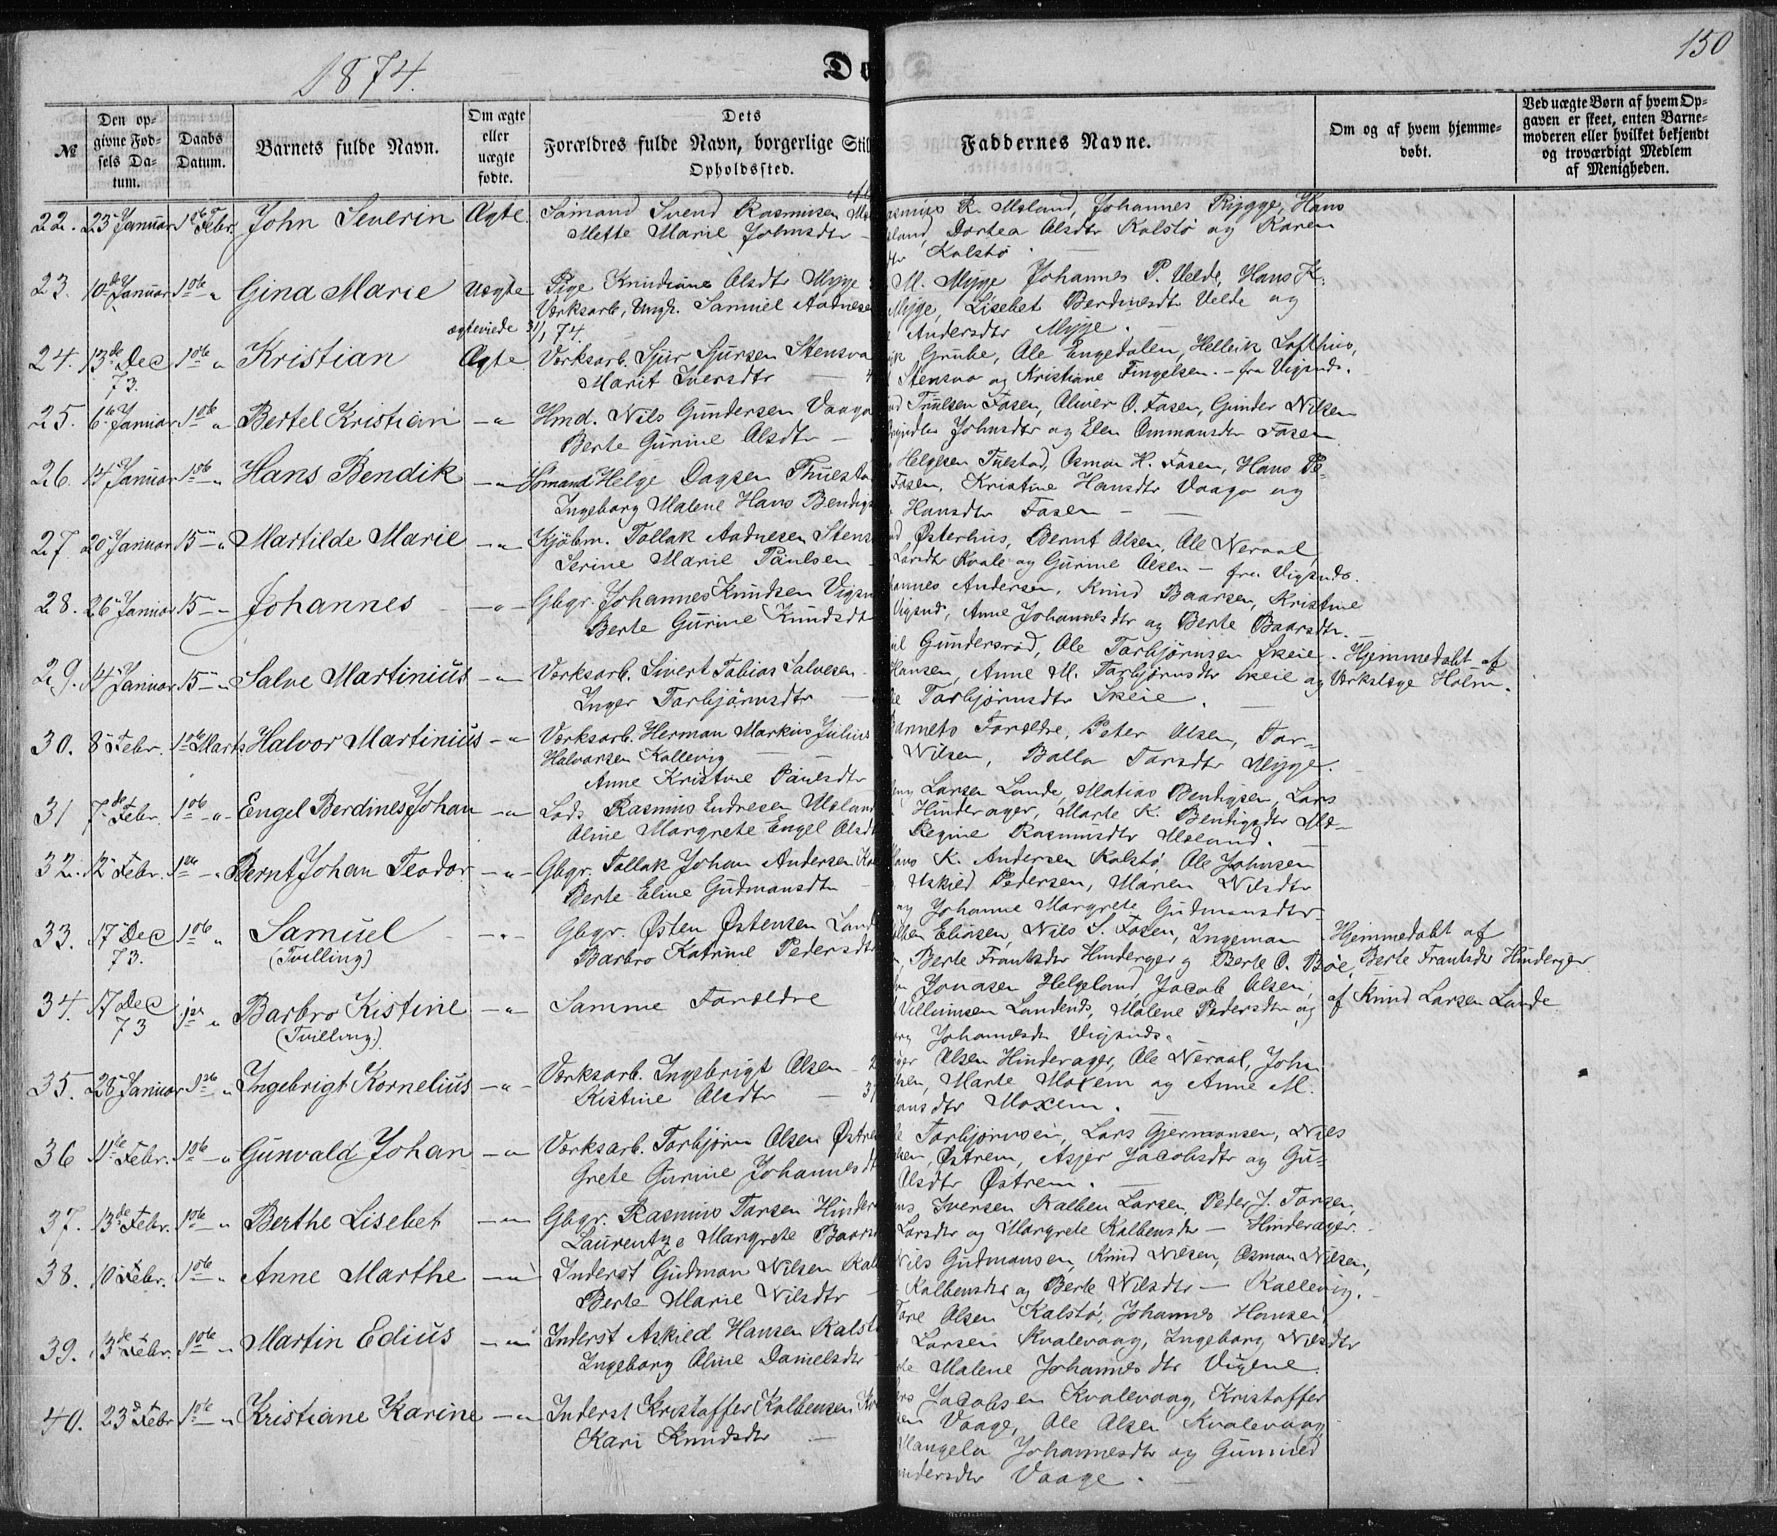 1874.
150
Dø
№
Den op-
givne Fød-
sels Da-
tum.
Daabs
Datum.
Barnets fulde Navn.
Om ægte
eller
uægte
fødte.
Dets
Forældres fulde Navn, borgerlige Stil
Opholdssted.
Faddernes Navne.
Om og af hvem hjemme-
døbt.
Ved uægte Børn af hvem Op-
gaven er skeet, enten Barne-
moderen eller hvilket bekjendt
og troværdigt Medlem
af Menigheden.
22. 23 Januar 1ste Febr. John Severin Ægte Sømand Svend Rasmussen
Mette Marie Johnsdtr
R. Møland, Johannes Rygge, Hans
Dortea Olsdtr Kolstø og Karen
Kolstø
23. 10de Januar 1ste " Gina Marie Uægte Pige Knudiane Olsdtr Mygge
Verksarb. Ungk. Samuel Aadnesen
ægteviede 31/1 74.
M. Mygge Johannes P. Velde, Hans K.
Mygge, Lisebet Berdinesdtr Velde og
Andersdtr Mygge.
24. 13de Dec 73. 1ste " Kristian Ægte Verksarb. Sjur Sjursen Stensvo
Marit Iversdtr
Grube, Ole Engedalen, Helleik Lofthus,
Stensvo og Kristiane Fingelsen. - fra Vigsnds.
25. 6te Januar 1ste " Bertel Kristian - " Hmd. Nils Gundersen Vaage
Berte Gurine Olsdtr
Trulsen Fosen, Oliver O. Fosen, Gunder Nilsen
Johnsdtr og Elen Ommansdtr Fosen
26. 14 Januar 1ste " Hans Bendik - " Hsmand Helge Dagsen Thuesta
Ingeborg Malene Hans Bendigs
Helgesen Tuestad, Osmon H. Fosen, Hans Pe
Fosen, Kristine Hansdtr Vaage og
Hansdtr Fosen
27. 20 Januar 15 " Martilde Marie - " Kjøbm. Tollak Aadnesen Stens
Serine Marie Paulsen
Østerhus, Bernt Olsen, Ole Neraal
Larsdtr Kvale og Gurine Olsen - fra Vigsnds.
28. 26 Januar 15 " Johannes - " Gbgr. Johannes Knudsen Vigsn
Berte Gurine Knudsdt
Andersen, Knud Baarsen, Kristine
Vigsnds, Anne Johannesdtr og Berte Baarsdtr.
29. 14 Januar 15 " Salve Martinius - " Verksarb. Sivert Tobias Salvesen
Inger Torbjørnsdtr
Gundersrød, Ole Torbjørnsen Skeie
Hansen, Anne M. Torbjørnsdtr Skeie og
Torbjørnsdtr Skeie.
Hjemmedøbt af
Verkslæge Holm.
30. 8 Febr. 1ste Marts Halvor Martinius - " Verksarb. Herman Markus Julius
Halvorsen Kallevig
Anne Kristine Paulsdtr
Barnets Forældre, Peter Olsen, Tor-
Nilsen, Bolla Torsdtr Mygge.
31 7de Febr. 1ste " Engel Berdines Johan - " Lods Rasmus Endresen Møland
Oline Margrete Engel Olsdt
Larsen Lande, Matias Bendigsen, Lars
Hinderager, Marte K. Bendigsdtr Mø-
Regine Rasmusdtr Møland.
32. 12 Febr. 1ste " Bernt Johan Teodor. - " Gbgr. Tollak Johan Andersen
Berte Eline Gudmansdtr
K. Andersen Kolstø, Ole Johnsen
Askild Pedersen, Maren Nilsdtr
og Johanne Margrete Gudmansdtr
33. 17 Dec 73. 1ste " Samuel
(Tvilling)
- " Gbgr. Østen Østensen Land
Barbro Katrine Pedersdt
Eliasen, Nils S. Fosen, Ingeman
Berte Frantsdtr Hinderger og Berte O. Bøe
Hjemmedøbt af
Berte Frantsdtr Hinderger
34. 17 Dec 73 1ste " Barbro Kistine
(Tvilling)
- " Samme Forældre
Jonasen Helgeland, Jacob Olsen,
Villumsen Landends, Malene Pedersdtr og
Johannesdtr Vigsnds.
af Knud Larsen Lande
35. 28 Januar 1ste " Ingebrigt Kornelius - " Verksarb. Ingebrigt Olsen
Kistine Olsdtr
Olsen Hinderager, Ole Neraal, John
Marte Moxem og Anne M.
Moxem.
36 11te Febr. 1ste " Gunvald Johan - " Verksarb. Torbjørn Olsen Østre
Grete Gurine Johannesdt
Torbjørnsen, Lars Gjermansen, Nils
Østrem, Asjer Jacobsdtr og Gu-
Olsdtr Østrem.
37. 13de Febr. 1ste " Berthe Lisebet - " Gbgr. Rasmus Torsen Hinder
Laurentze Margrete Baars
Iversen Kolben Larsen, Peder J. Torsen,
Larsdtr og Margrete Kolbensdtr - Hinderager.
38. 10 Febr. 1ste " Anne Marthe - " Inderst Gudman Nilsen Kal
Berte Marie Nilsdtr
Nils Gudmansen, Knud Nilsen, Osmon Nilsen,
Kolbensdtr og Berte Nilsdtr - Kallevig.
39. 3de Febr. 1ste " Martin Edius - " Inderst Askild Hansen Kolst
Ingeborg Oline Danielsdtr
Tore Olsen Kolstø, Johannes Hansen
Larsen Kvalevaag, Ingeborg Nilsdtr
Malene Johannesdtr Vigene
40. 23 Febr 1ste " Kristiane Karine - " Inderst Kristoffer Kolbensen
Kari Knudsdtr
Jacobsen Kvalevaag, Kristoffer
Vaage, Ole Olsen Kvalevaag
Mangela Johannesdtr og Gunnild
Vaage.